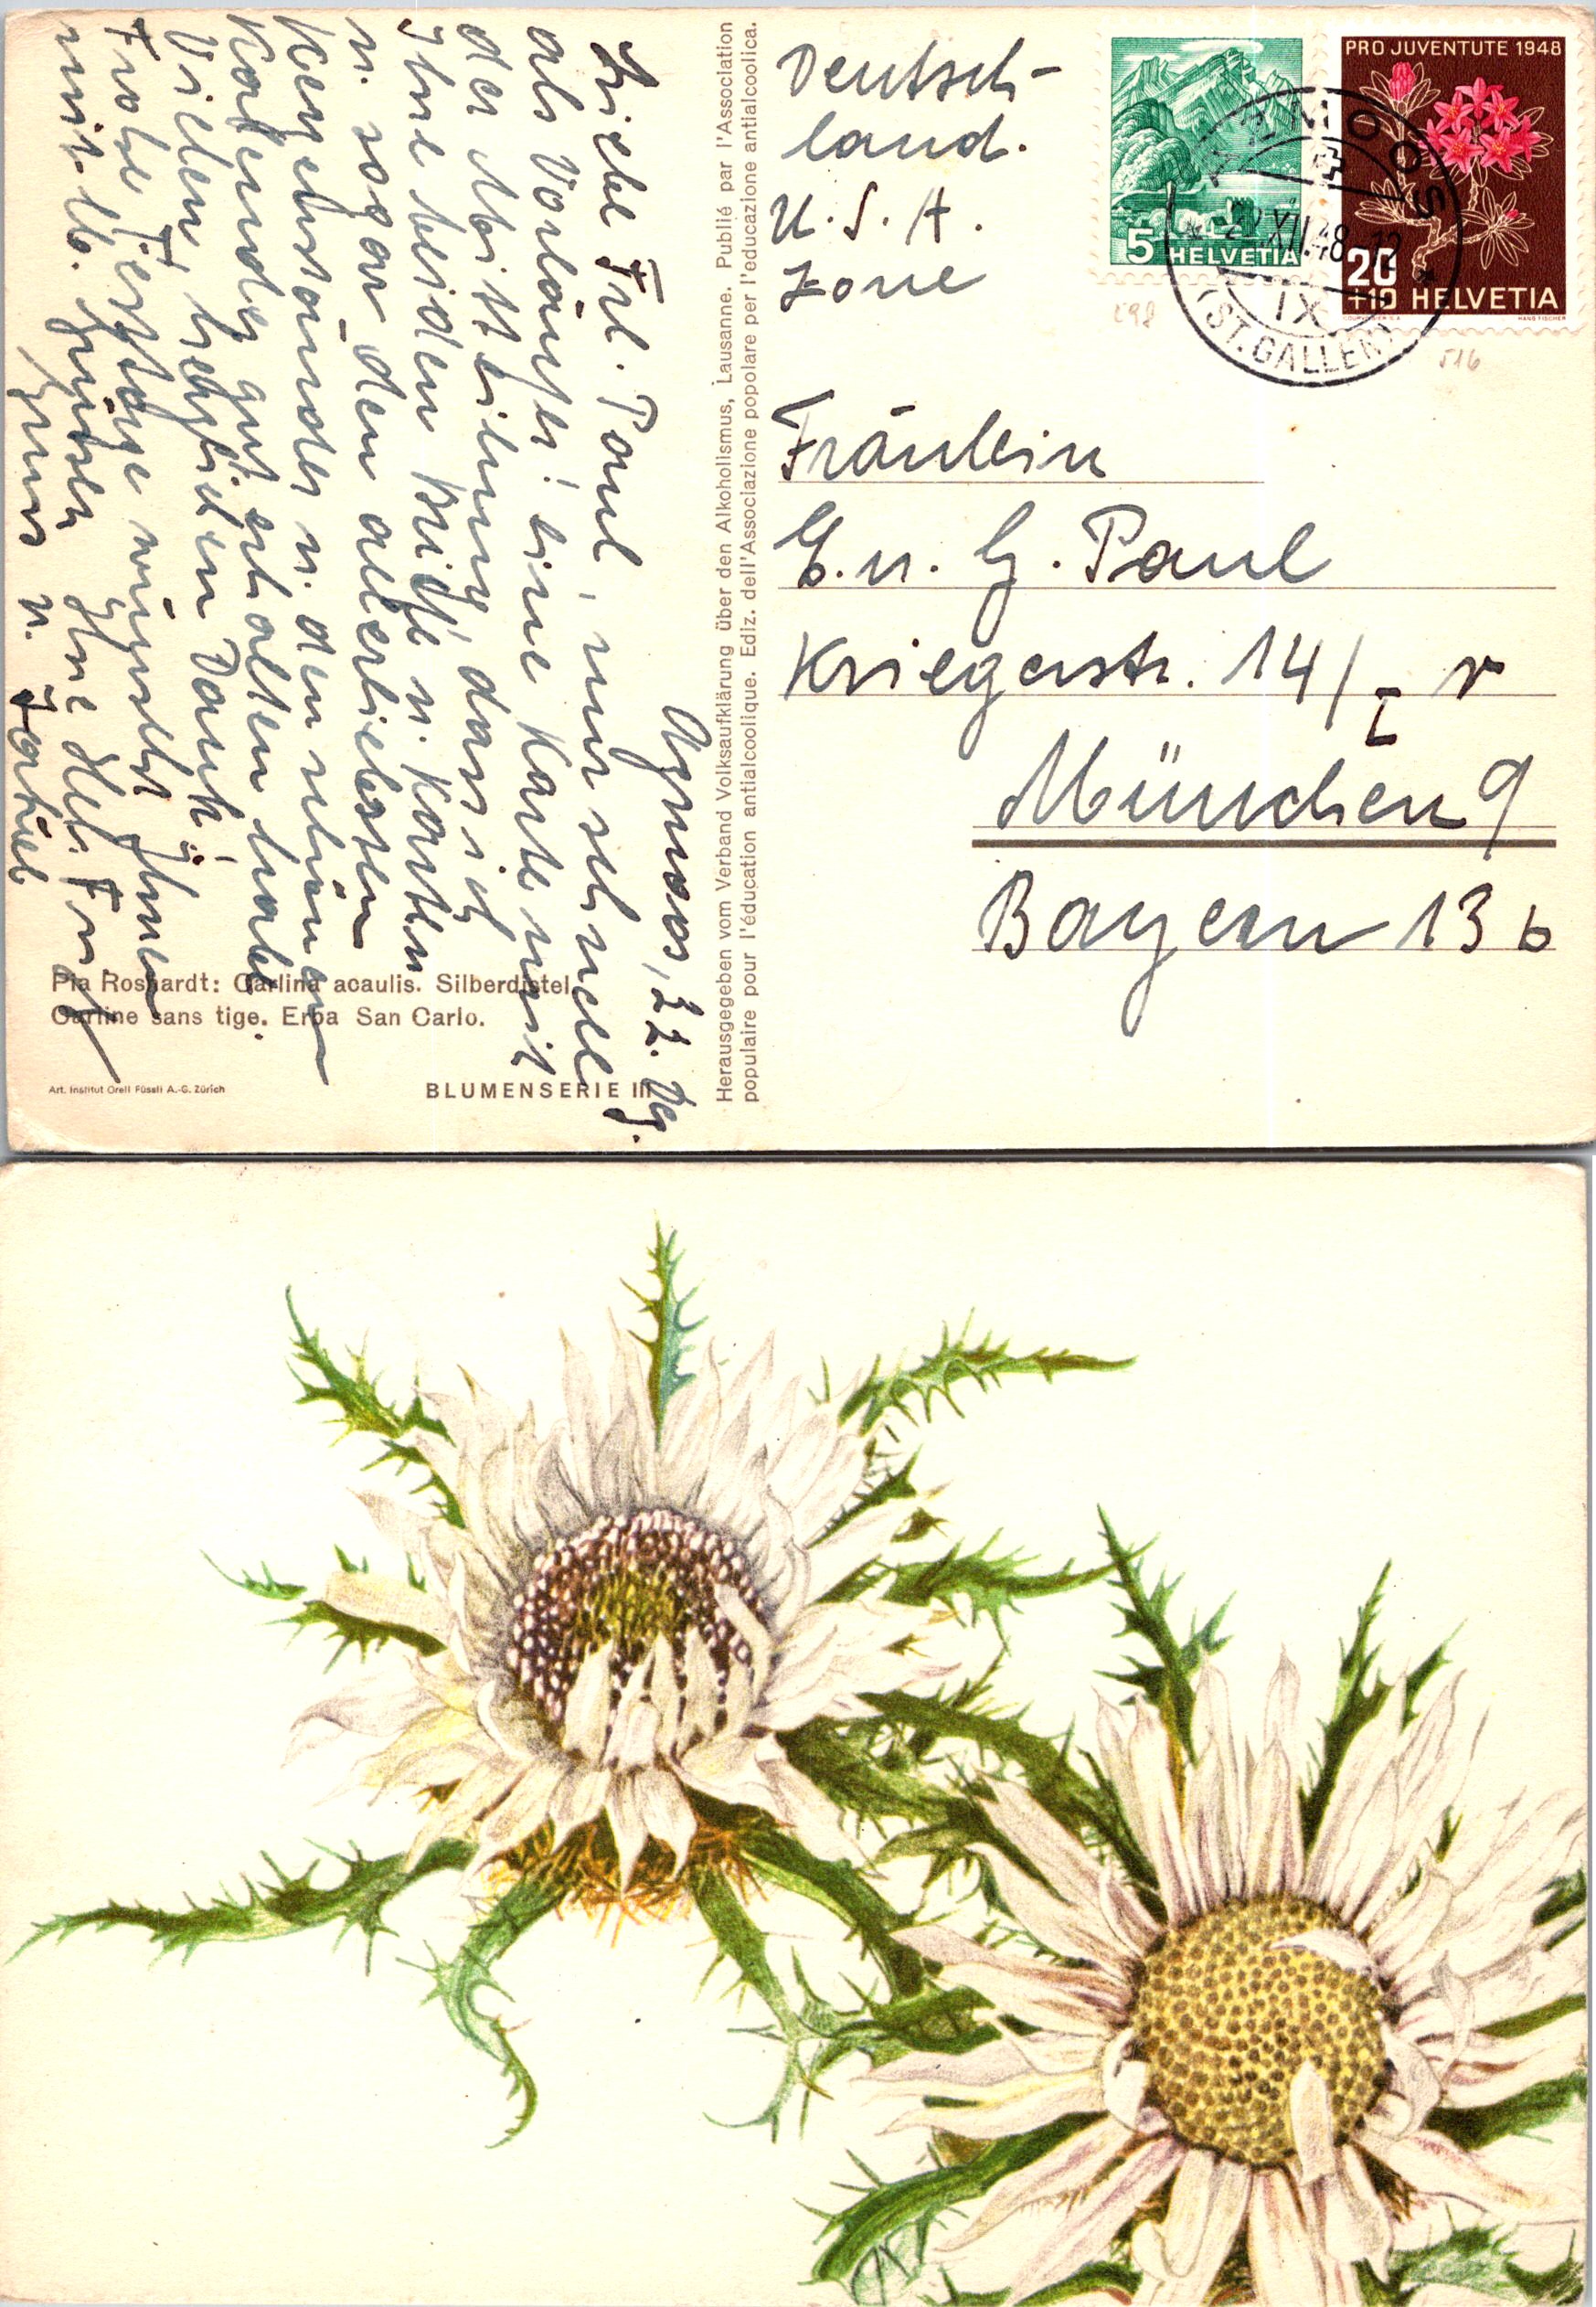 Azmoos, 22. Dez.
Liebe Frl. Paul, nur schnell
als Vorläufer eine Karte mit
der Mitteilung, dass ich
Ihre beiden Briefe u. Karten
u. sogar den allerliebsten
u. den schönen
Kalender gut erhalten habe
Vielen, herzlichen Dank!
Frohe Festtage wünscht Ihnen
mit lb. Grüssen Ihre
u.
Pia Roshardt: Carlina acaulis. Silberdistel.
Carline sans tige. Erba San Carlo.
Art. Institut Orell Füssli A.-G. Zürich
BLUMENSERIE III
Herausgegeben vom Verband Volksaufklärung über den Alkoholismus, Lausanne. Publié par l'Association
populaire pour l'éducation antialcoolique. Ediz. dell'Associazione popolare per l'educazione antialcoolica.
Deutsch-
land.
U.S.A.
Zone
5 HELVETIA
PRO JUVENTUTE 1948
20
+10 HELVETIA
COURVOISIER S.A. HANS FISCHER
AZMOOS
XII.48-12
IX
(ST. GALLEN)
298
516
Fräulein
E. u. G. Paul
Kriegerstr. 14/I r
München 9
Bayern 13 b